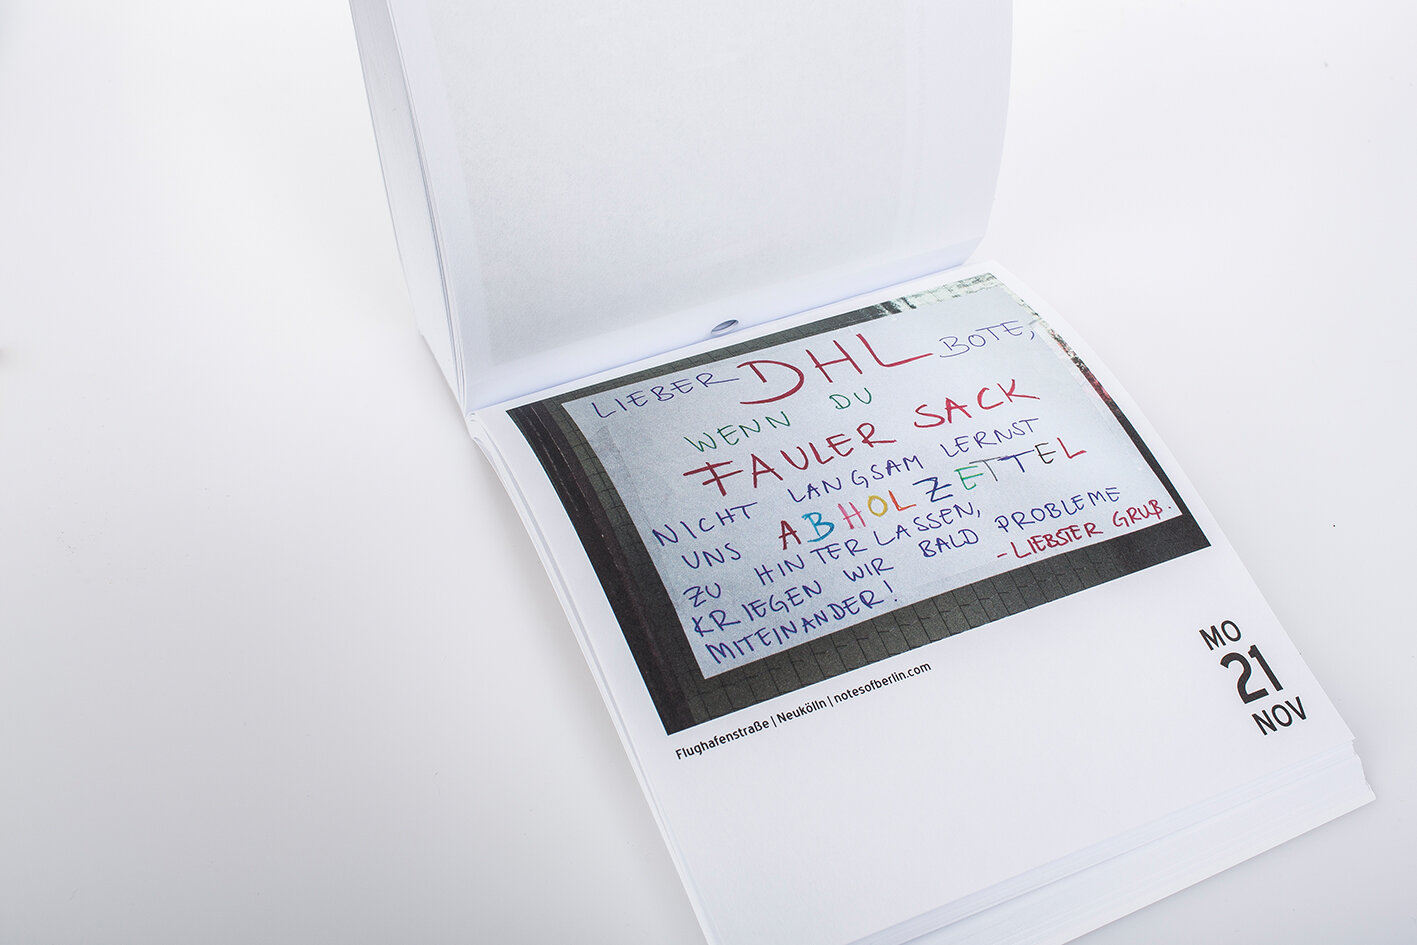 LIEBER DHL BOTE,
WENN DU
FAULER SACK
NICHT LANGSAM LERNST
UNS ABHOLZETTEL
ZU HINTERLASSEN,
KRIEGEN WIR BALD PROBLEME
MITEINANDER!
-LIEBSTER GRUß.
Flughafenstraße | Neukölln | notesofberlin.com
MO
21
NOV